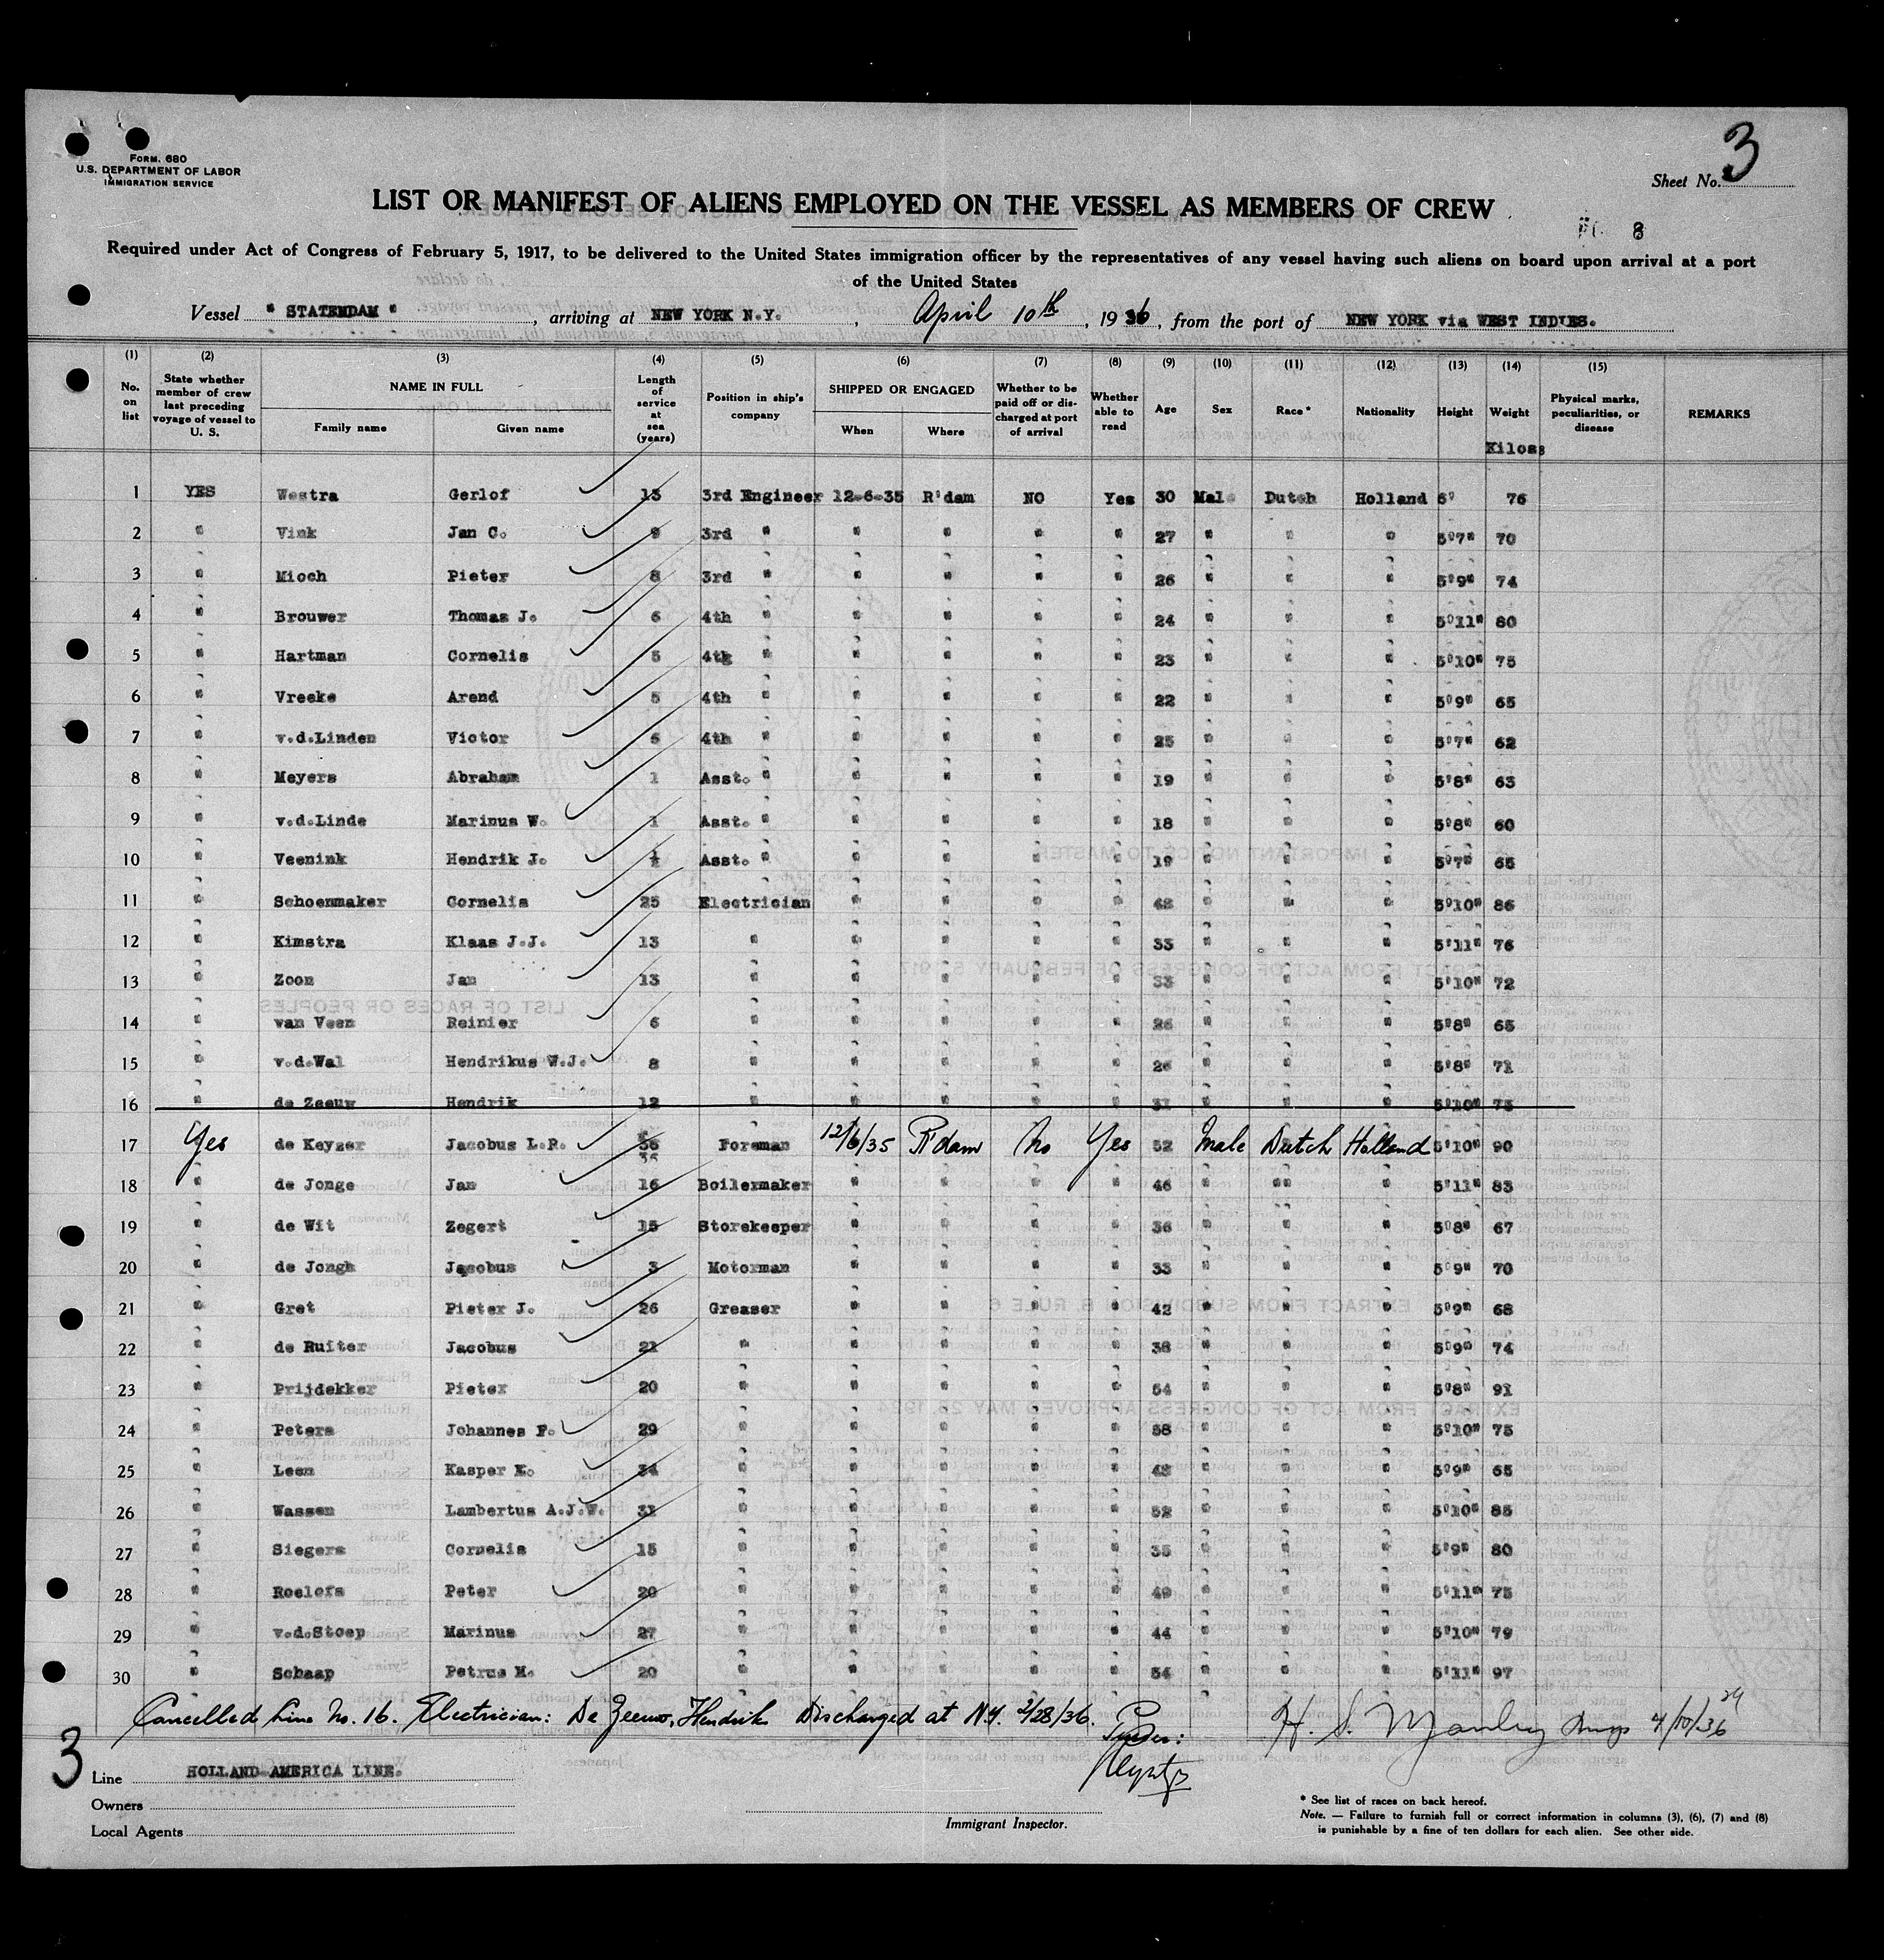 Form. 680
U.S. DEPARTMENT OF LABOR
IMMIGRATION SERVICE
Sheet No. 3
LIST OR MANIFEST OF ALIENS EMPLOYED ON THE VESSEL AS MEMBERS OF CREW
8
Required under Act of Congress of February 5, 1917, to be delivered to the United States immigration officer by the representatives of any vessel having such aliens on board upon arrival at a port
of the United States
Vessel " STATENDAM ", arriving at NEW YORK N.Y., April 10th, 1936, from the port of NEW YORK via WEST INDIES.
(1) (2) (3) (4) (5) (6) (7) (8) (9) (10) (11) (12) (13) (14) (15)
No. on list State whether member of crew last preceding voyage of vessel to U. S. NAME IN FULL Family name Given name Length of service at sea (years) Position in ship's company SHIPPED OR ENGAGED When Where Whether to be paid off or discharged at port of arrival Whether able to read Age Sex Race* Nationality Height Weight Physical marks, peculiarities, or disease REMARKS
Kilos
1 YES Westra Gerlof 13 3rd Engineer 12-6-35 R'dam NO Yes 30 Male Dutch Holland 6' 76
2 " Vink Jan C. 9 3rd " " " " " 27 " " " 5'7" 70
3 " Mioch Pieter 8 3rd " " " " " 26 " " " 5'9" 74
4 " Brouwer Thomas J. 6 4th " " " " " 24 " " " 5'11" 80
5 " Hartman Cornelis 5 4th " " " " " 23 " " " 5'10" 75
6 " Vreeke Arend 5 4th " " " " " 22 " " " 5'9" 65
7 " v.d.Linden Victor 6 4th " " " " " 25 " " " 5'7" 62
8 " Meyers Abraham 1 Asst. " " " " " 19 " " " 5'8" 63
9 " v.d.Linde Marinus W. 1 Asst. " " " " " 18 " " " 5'8" 60
10 " Veenink Hendrik J. ½ Asst. " " " " " 19 " " " 5'7" 65
11 " Schoenmaker Cornelis 25 Electrician " " " " 48 " " " 5'10" 86
12 " Kimstra Klaas J.J. 13 " " " " " 33 " " " 5'11" 76
13 " Zoon Jan 13 " " " " " 33 " " " 5'10" 72
14 " van Veen Reinier 6 " " " " " 26 " " " 5'8" 65
15 " v.d.Wal Hendrikus W.J. 8 " " " " " 26 " " " 5'8" 71
16 " de Zeeuw Hendrik 12 " " " " " 31 " " " 5'10" 75
17 Yes de Keyzer Jacobus L.R. 35 Foreman 12/6/35 R'dam No Yes 52 Male Dutch Holland 5'10" 90
18 " de Jonge Jan 16 Boilermaker " " " " 46 " " " 5'11" 83
19 " de Wit Zegert 15 Storekeeper " " " " 36 " " " 5'8" 67
20 " de Jongh Jacobus 3 Motorman " " " " 33 " " " 5'9" 70
21 " Gret Pieter J. 26 Greaser " " " " 42 " " " 5'9" 68
22 " de Ruiter Jacobus 21 " " " " " 38 " " " 5'9" 74
23 " Prijdekker Pieter 20 " " " " " 54 " " " 5'8" 91
24 " Peters Johannes F. 29 " " " " " 58 " " " 5'10" 75
25 " Leen Kasper K. 34 " " " " " 48 " " " 5'9" 65
26 " Wassen Lambertus A.J.W. 31 " " " " " 52 " " " 5'10" 85
27 " Siegers Cornelis 15 " " " " " 35 " " " 5'9" 80
28 " Roelofs Peter 20 " " " " " 49 " " " 5'11" 75
29 " v.d.Stoep Marinus 27 " " " " " 44 " " " 5'10" 79
30 " Schaap Petrus M. 20 " " " " " 54 " " " 5'11" 97
Cancelled Line No. 16. Electrician: De Zeeuw, Hendrik Discharged at N.Y. 2/28/36.
Purser:
H. S. Manley 4/10/36
3
Line HOLLAND-AMERICA LINE.
Owners
Local Agents
Immigrant Inspector.
* See list of races on back hereof.
Note. — Failure to furnish full or correct information in columns (3), (6), (7) and (8)
is punishable by a fine of ten dollars for each alien. See other side.